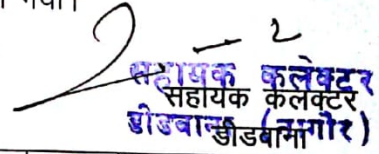 गया।
2
सहायक कलेक्टर
सहायक कलेक्टर
डीडवाना (नागौर)
डीडवाना